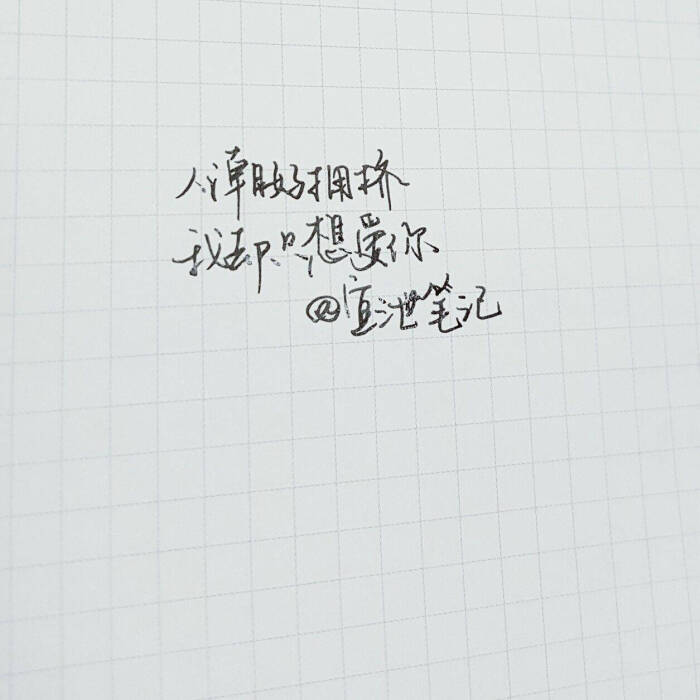 人潮好拥挤
我却只想爱你
@宣泄笔记